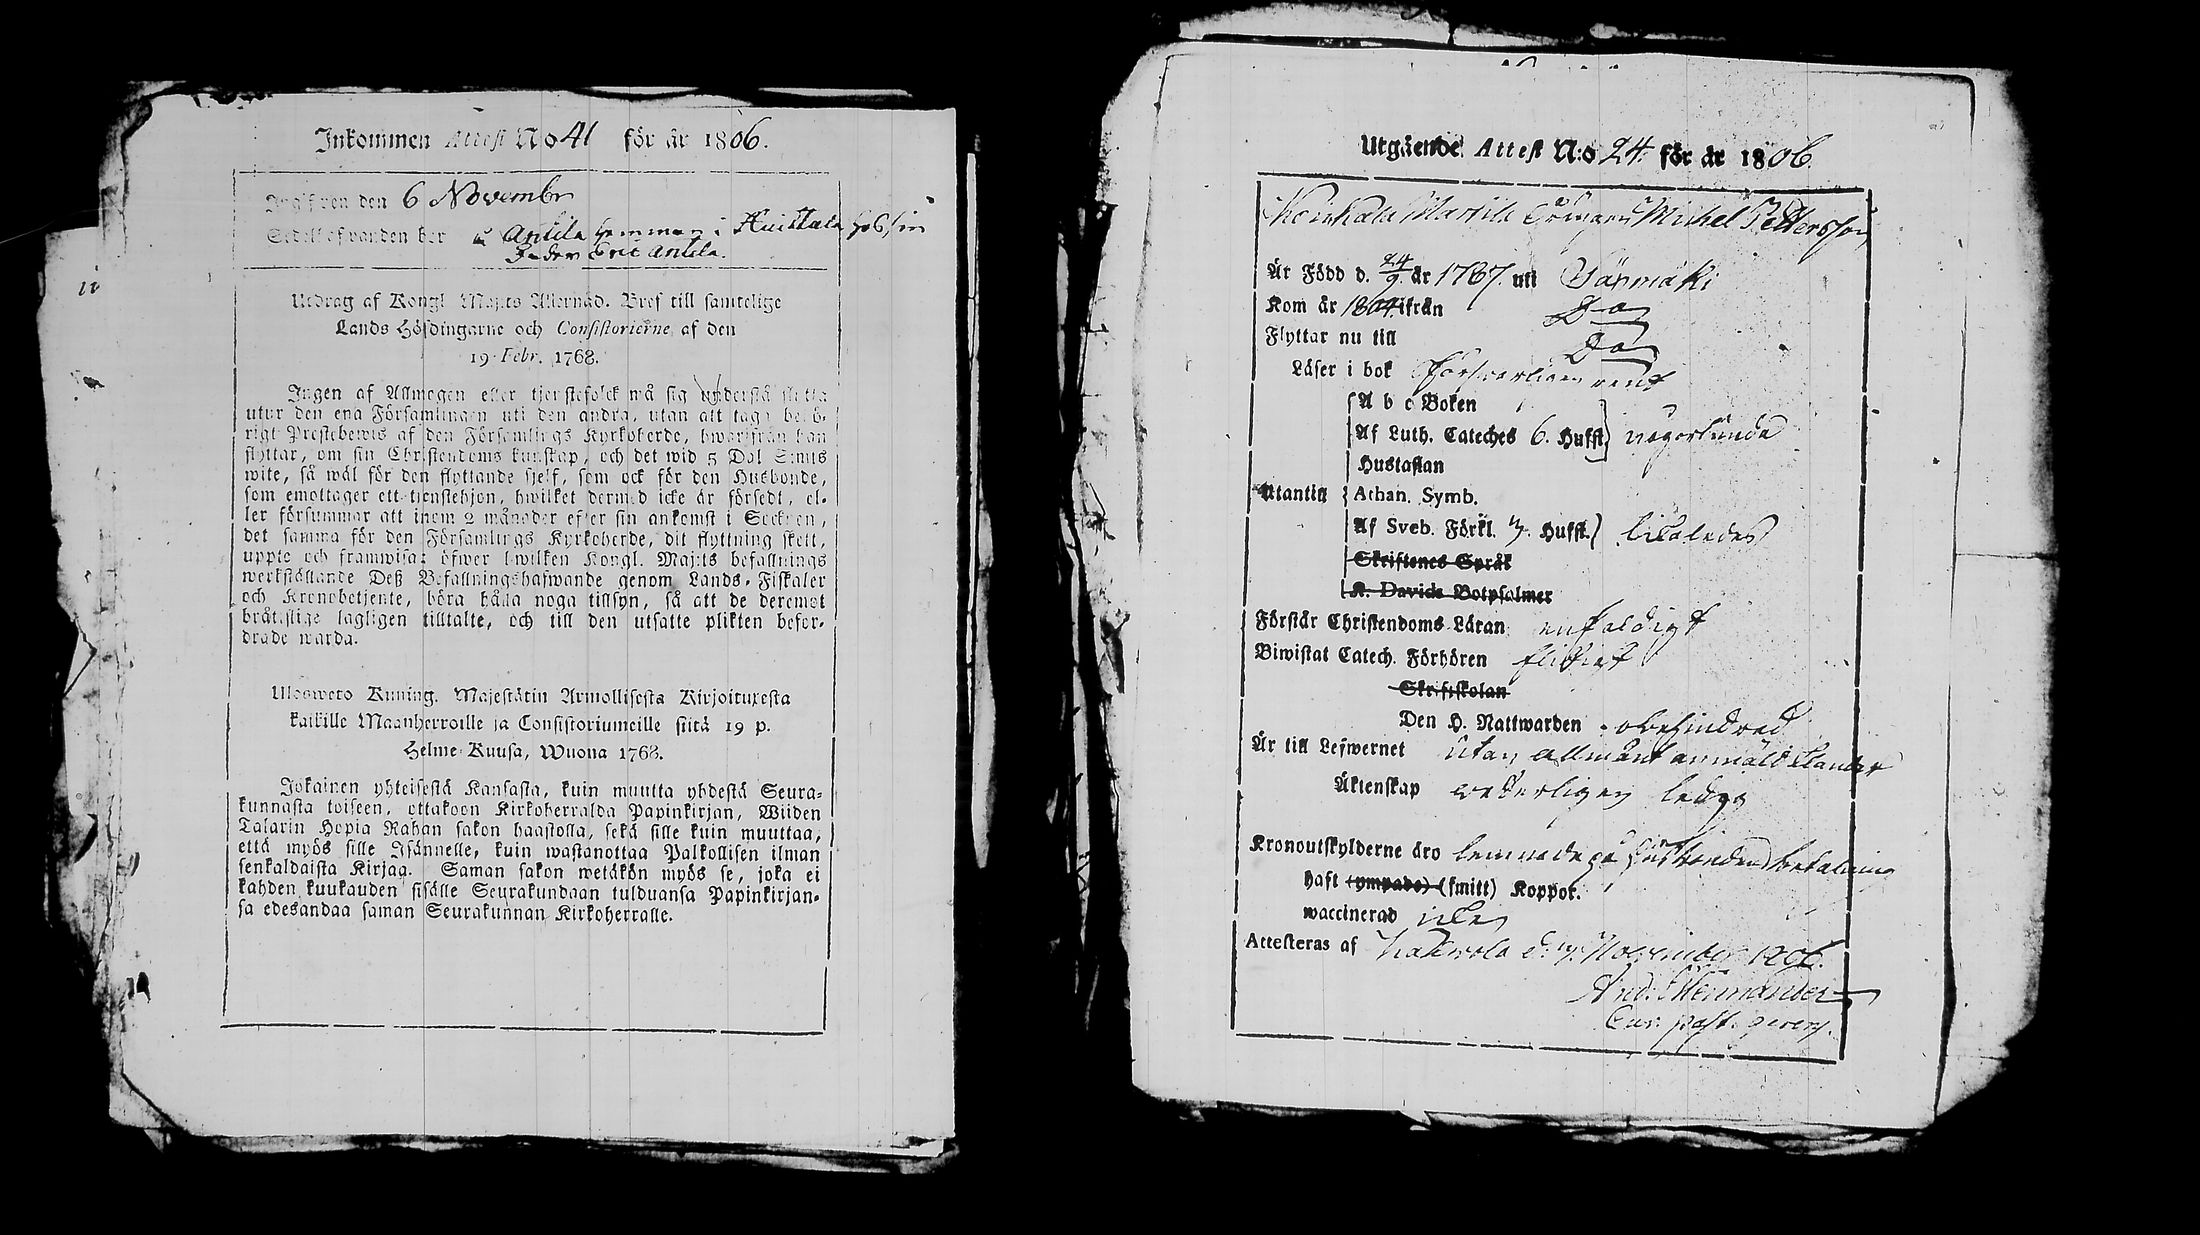 Inkommen Attest No 41 för år 1806.
Ingifven den 6 Novembr
Sedelhafvanden bor å Antila hemman i Huittula hos sin
Fader Eric Antila.
Utdrag af Kongl. Maj:ts Allernåd. Bref till samtelige
Lands Höfdingarne och Consistorierne af den
19 Febr. 1768.
Ingen af Allmogen eller tjenstefolck må sig understå flytta
utur den ena Församlingen uti den andra, utan att taga behö-
rigt Prestebewis af den Församlings Kyrkoherde, hwarifrån han
flyttar, om sin Christendoms kunskap, och det wid 5 Dal. S:mts
wite, så wäl för den flyttande sjelf, som ock för den Husbonde,
som emottager ett tjenstehjon, hwilket dermed icke är försedt, el-
ler försummar att inom 2 månader efter sin ankomst i Socknen,
det samma för den Församlings Kyrkoherde, dit flyttning skett,
uppte och framwisa: öfwer hwilken Kongl. Maj:ts befallnings
werkställande Deß Befallningshafwande genom Lands-Fiskaler
och Kronobetjente, böra hålla noga tillsyn, så att de deremot
bråtslige lagligen tilltalte, och till den utsatte plikten befor-
drade warda.
Ulosweto Kuning. Majestätin Armollisesta Kirjoituxesta
kaikille Maanherroille ja Consistoriumeille siitä 19 p.
Helme-Kuusa, Wuona 1768.
Jokainen yhteisestä Kansasta, kuin muutta yhdestä Seura-
kunnasta toiseen, ottakoon Kirkoherralda Papinkirjan, Wiiden
Talarin Hopia Rahan sakon haastolla, sekä sille kuin muuttaa,
että myös sille Isännelle, kuin wastanottaa Palkollisen ilman
senkaldaista Kirjaa. Saman sakon wetäkön myös se, joka ei
kahden kuukauden sisälle Seurakundaan tulduansa Papinkirjan-
sa edesandaa saman Seurakunnan Kirkoherralle.
Utgående Attest N:o 24. för år 1806.
Martila Drängen Michel Pettersson
Är Född d. 24/9 år 1767. uti Säxmäki
Kom år 1804. ifrån Do
Flyttar nu till Do
Läser i bok försvarligen rent
A b c Boken
Af Luth. Cateches 6. Hufst. någorlunda
Hustaflan
Utantill Athan. Symb.
Af Sveb. Förkl. Hufst. likaledes
Skriftenes Språk
K. Davids Botpsalmer
Förstår Christendoms Läran enfaldigt
Biwistat Catech. Förhören flitigt
Skriftskolan
Den H. Nattwarden obehindrad
Är till Lefwernet utan allmänt anmäld klander
Äktenskap vederligen ledig
Kronoutskylderne äro lemnade på husbondens betalning
haft (ympade) (smitt) Koppor.
waccinerad icke
Attesteras af Kalvola d. 7 November 1806.
And.
Cur. past. gerens.